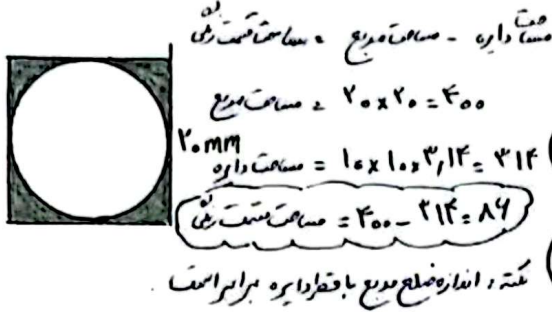 مساحت دایره - مساحت مربع = مساحت قسمت رنگی
مساحت مربع = ۲۰×۲۰=۴۰۰
۲۰mm
مساحت دایره = ۱۰×۱۰×۳,۱۴=۳۱۴
مساحت قسمت رنگی = ۴۰۰-۳۱۴=۸۶
نکته: اندازه ضلع مربع با قطر دایره برابر است.